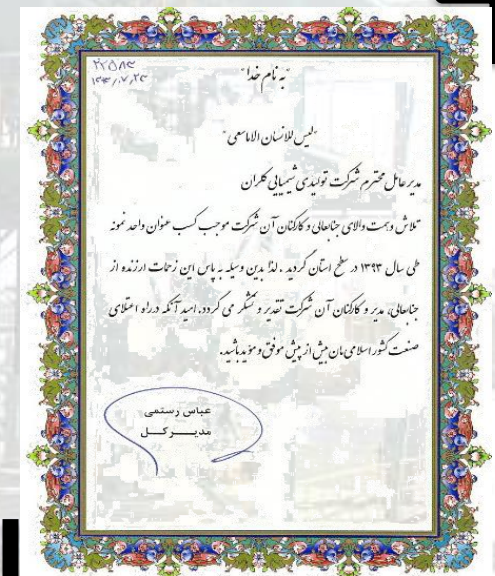 ۲۳۵۸۳
۱۳۹۳/۰۷/۲۳
"به نام خدا"
"لیس للانسان الا ماسعی"
مدیر عامل محترم شرکت تولیدی شیمیایی کلران
تلاش و همت والای جنابعالی و کارکنان آن شرکت موجب کسب عنوان واحد نمونه
طی سال ۱۳۹۳ در سطح استان گردید . لذا بدین وسیله به پاس این زحمات ارزنده از
جنابعالی، مدیر و کارکنان آن شرکت تقدیر و تشکر می گردد. امید آنکه در راه اعتلای
صنعت کشور اسلامی مان بیش از پیش موفق و مؤید باشید.
عباس رستمی
مدیر کل